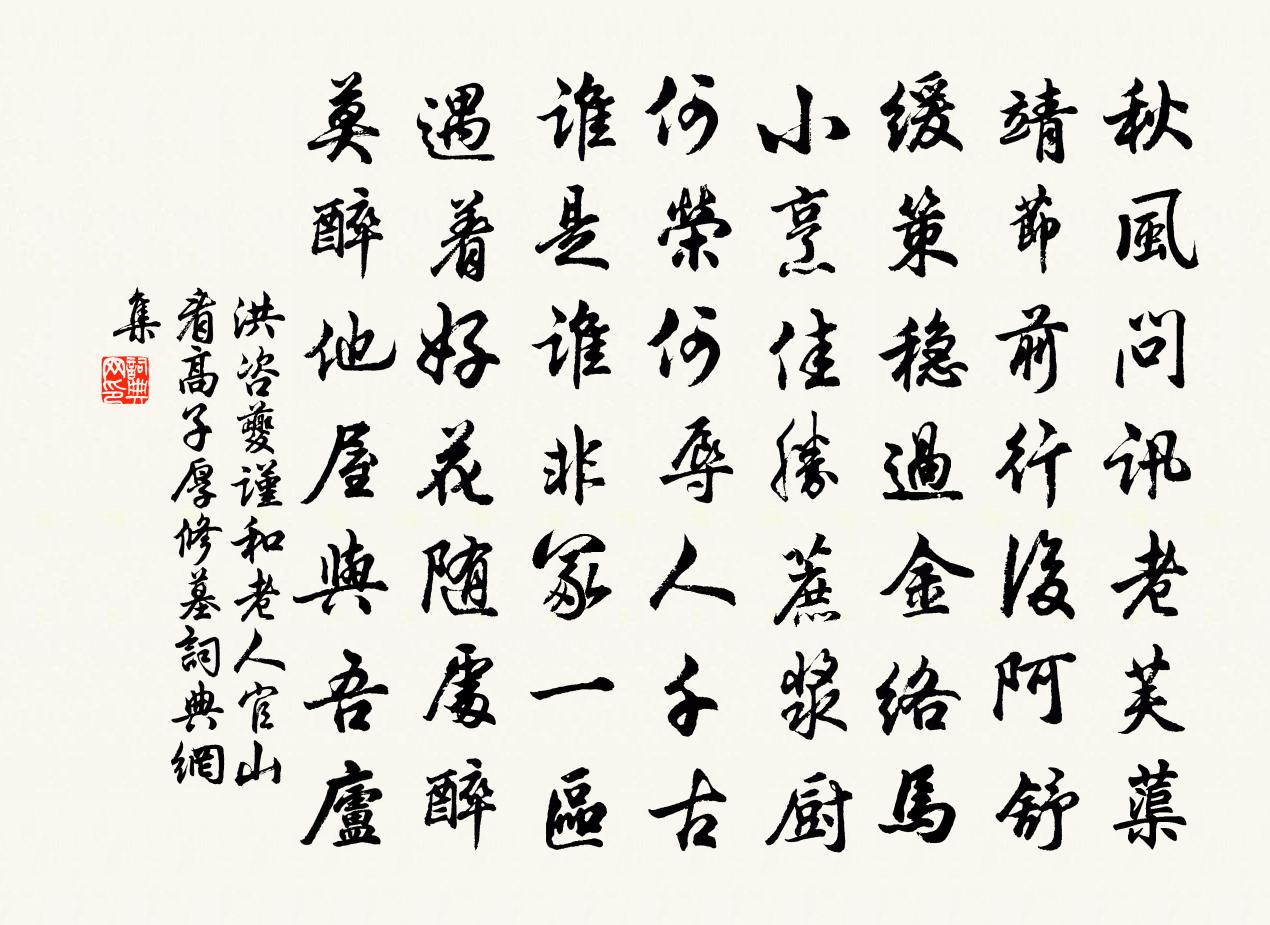 秋風問訊老芙蕖
靖節前行後阿舒
緩策穏過金絡馬
小烹佳勝蔗漿厨
何榮何辱人千古
誰是誰非冢一區
遇着好花随處醉
莫醉他屋與吾廬
洪咨夔謹和老人官山
看高子厚修墓詞典網
集
詞典
网印